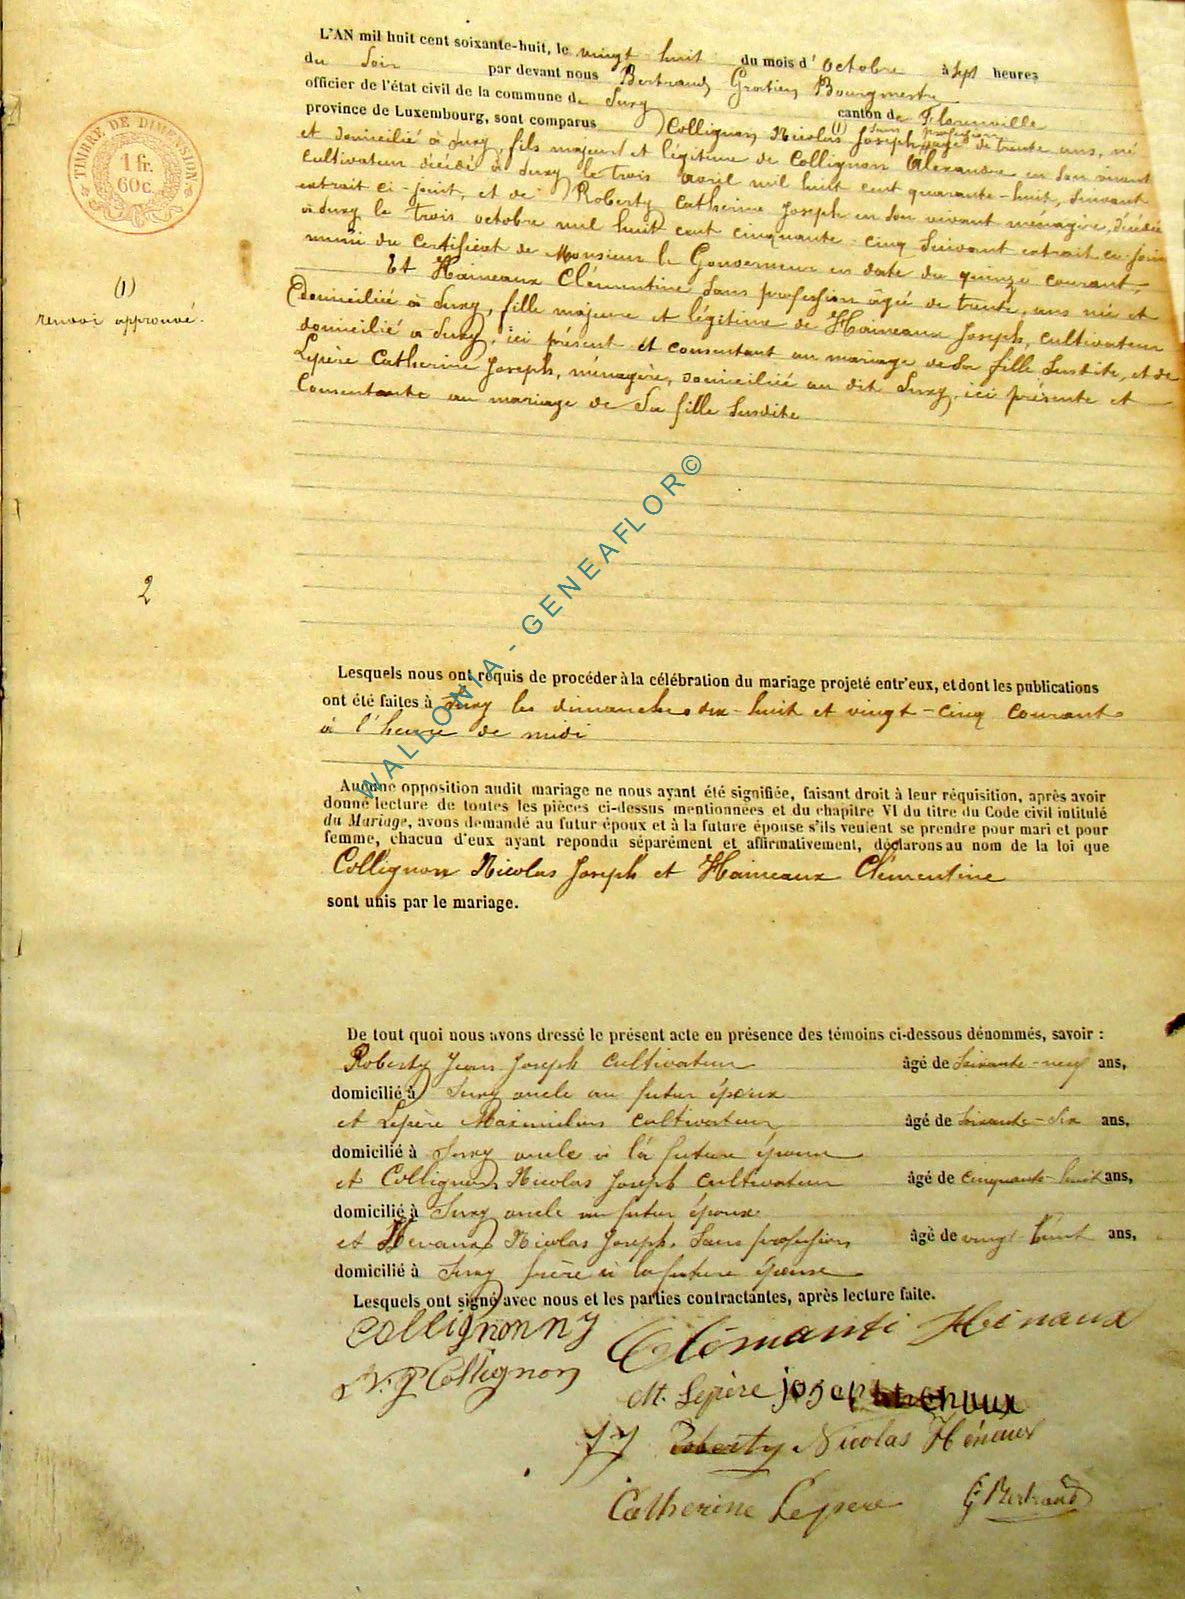 TIMBRE DE DIMENSION
1 fr.
60c.
L'AN mil huit cent soixante-huit, le vingt huit du mois d'octobre à sept heures
du soir par devant nous Bertrand Gratien Bourgmestre
officier de l'état civil de la commune de Suxy canton de Florenville
province de Luxembourg, sont comparus Collignon Nicolas Joseph (1) sans profession âgé de trente ans, né
et domicilié à Suxy, fils majeur et légitime de Collignon Alexandre en son vivant
cultivateur décédé à Suxy le trois avril mil huit cent quarante-huit, suivant
extrait ci-joint, et de Roberty Catherine Joseph en son vivant ménagère, décédée
à Suxy le trois octobre mil huit cent cinquante-cinq suivant extrait ci-joint
muni du certificat de Monsieur le Gouverneur en date du quinze courant,
Et Haineaux Clémentine sans profession âgée de trente ans née et
domiciliée à Suxy, fille majeure et légitime de Haineaux Joseph, cultivateur
domicilié à Suxy, ici présent et consentant au mariage de sa fille susdite, et de
Lepère Catherine Joseph, ménagère, domiciliée au dit Suxy, ici présente et
consentante au mariage de sa fille susdite
(1)
renvoi approuvé.
2
Lesquels nous ont requis de procéder à la célébration du mariage projeté entr'eux, et dont les publications
ont été faites à Suxy les dimanches dix-huit et vingt-cinq courant
à l'heure de midi
Aucune opposition audit mariage ne nous ayant été signifiée, faisant droit à leur réquisition, après avoir
donné lecture de toutes les pièces ci-dessus mentionnées et du chapitre VI du titre du Code civil intitulé
du Mariage, avons demandé au futur époux et à la future épouse s'ils veulent se prendre pour mari et pour
femme, chacun d'eux ayant repondu séparément et affirmativement, déclarons au nom de la loi que
Collignon Nicolas Joseph et Haineaux Clémentine
sont unis par le mariage.
De tout quoi nous avons dressé le présent acte en présence des témoins ci-dessous dénommés, savoir :
Roberty Jean Joseph cultivateur âgé de soixante-neuf ans,
domicilié à Suxy oncle au futur époux
et Lepère Maximilien cultivateur âgé de soixante-six ans,
domicilié à Suxy oncle à la future épouse
et Collignon Nicolas Joseph cultivateur âgé de cinquante-huit ans,
domicilié à Suxy oncle au futur époux
et Nicolas Joseph, sans profession âgé de vingt huit ans,
domicilié à Suxy frère à la future épouse
Lesquels ont signé avec nous et les parties contractantes, après lecture faite.
Collignon n j Clémanti Hénaux
N. J Collignon
M. Lepère joseph henaux
J J Roberty Nicolas Hénaux
Catherine Lepere G Bertrand
WALLONIA - GENEAFLOR©